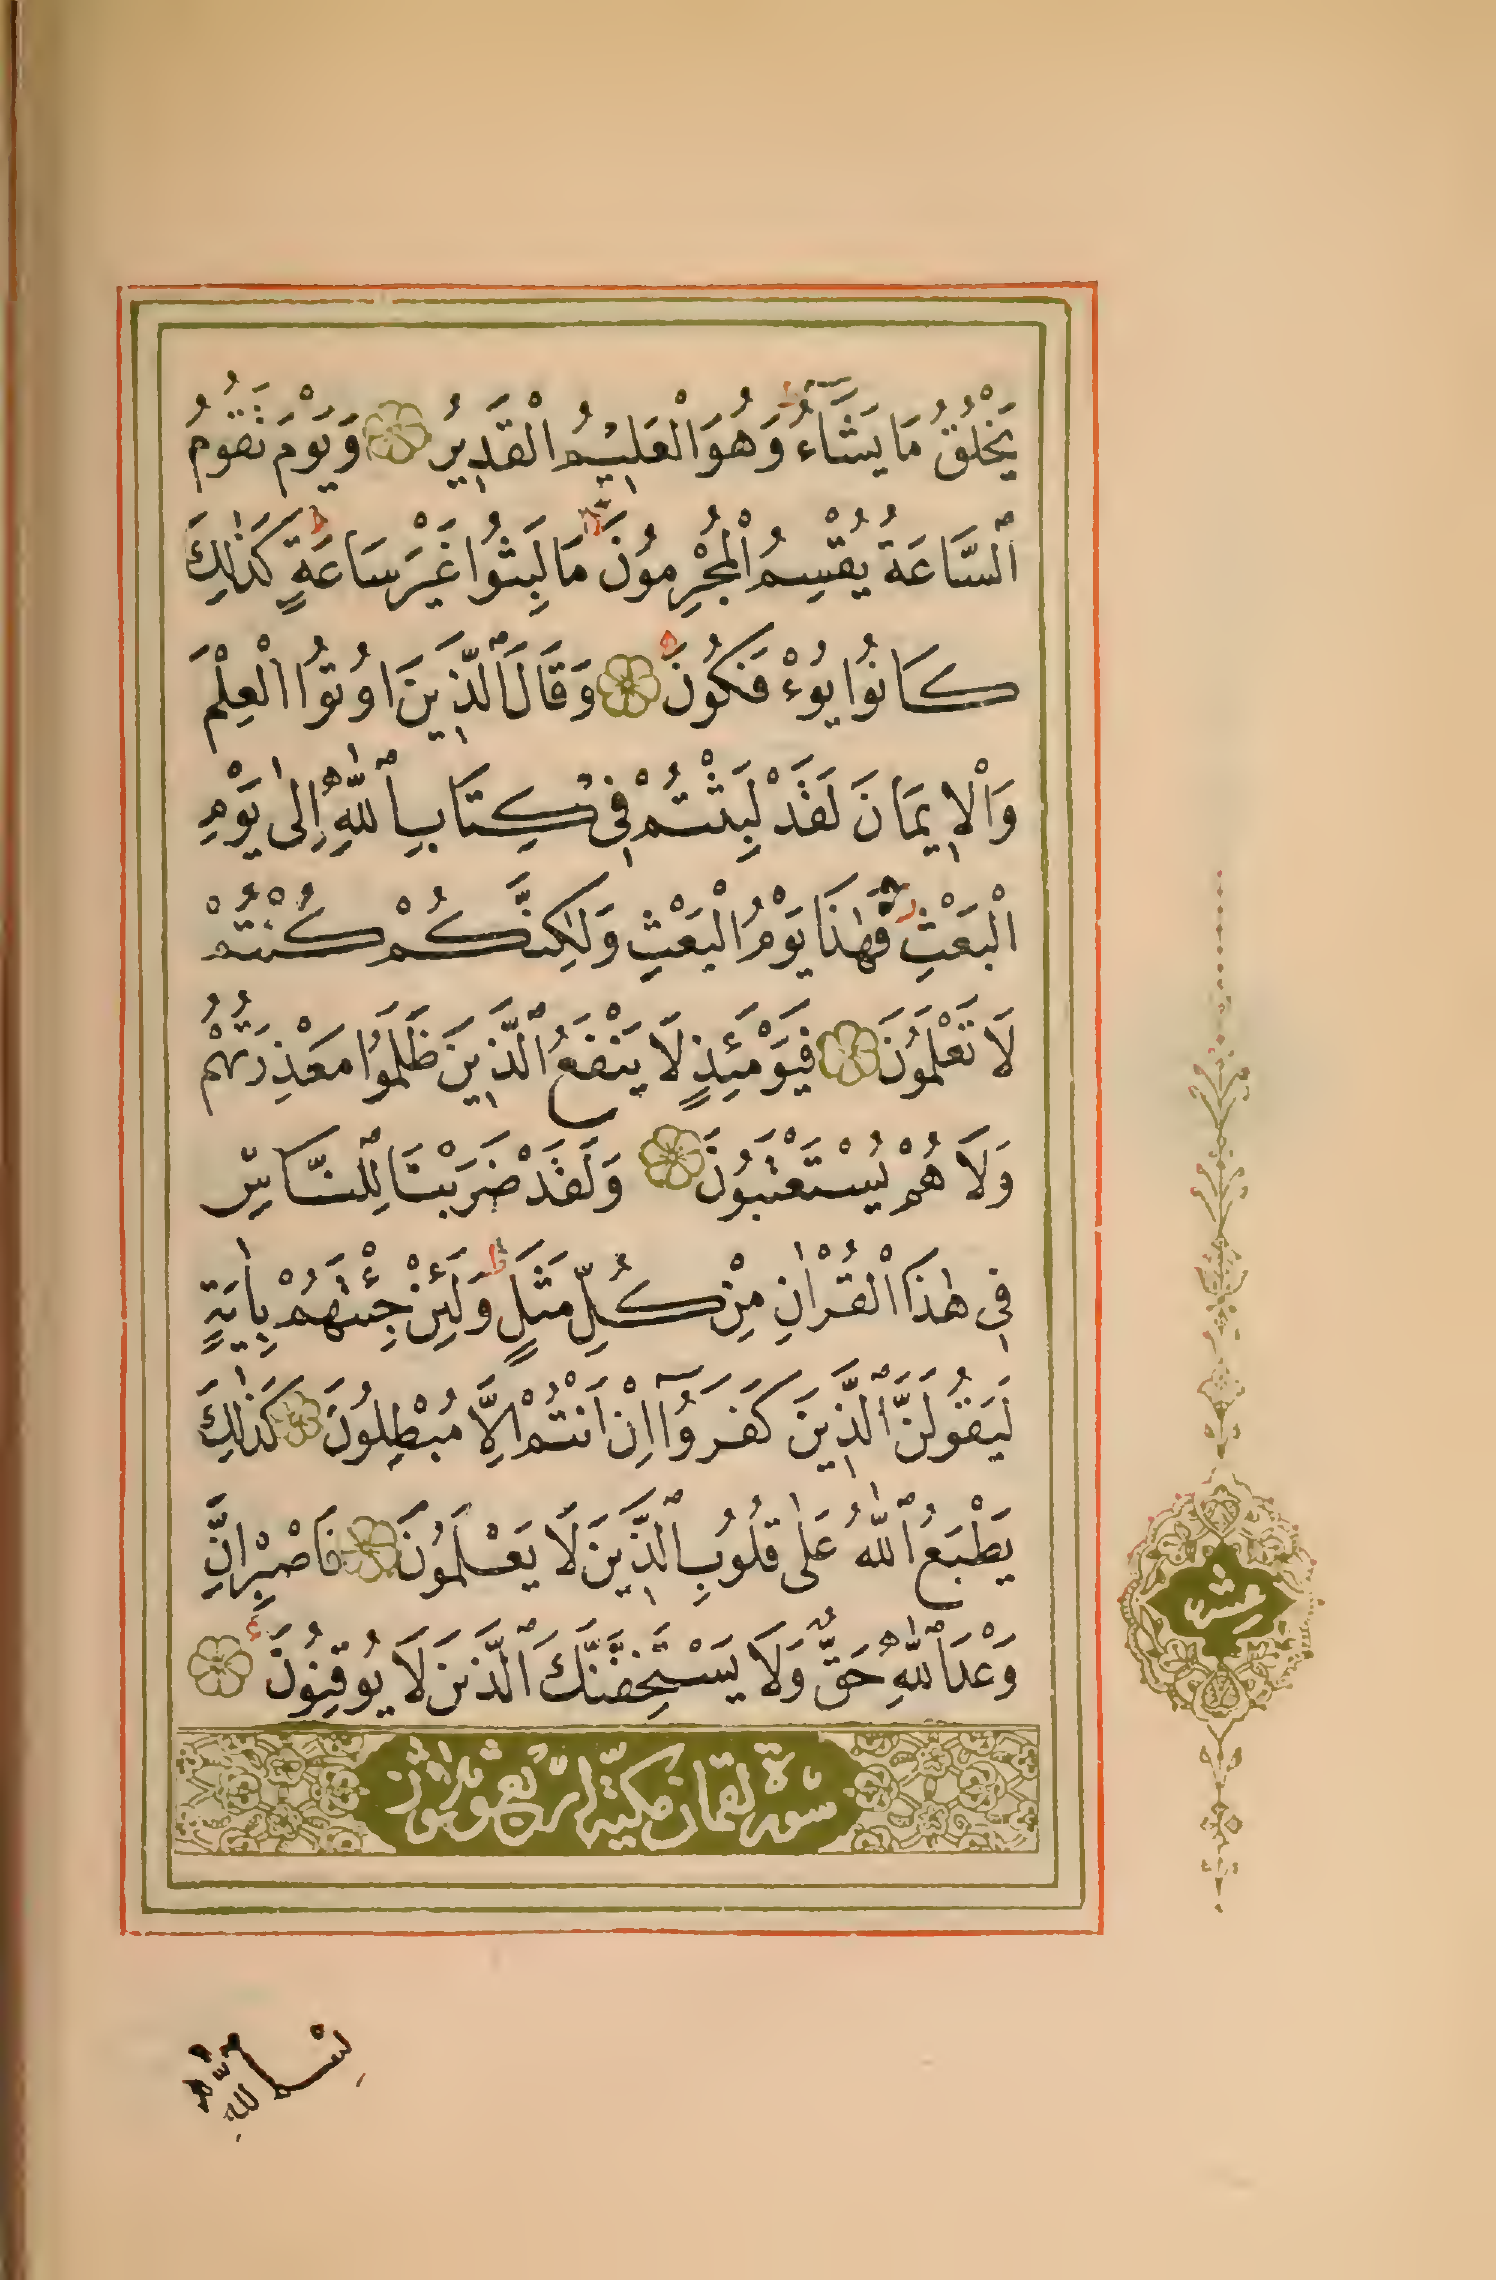 يَخْلُقُ مَا يَشَٓاءُ ۚ وَهُوَ الْعَل۪يمُ الْقَد۪يرُ وَيَوْمَ تَقُومُ
السَّاعَةُ يُقْسِمُ الْمُجْرِمُونَ مَا لَبِثُوا غَيْرَ سَاعَةٍ ۜ كَذٰلِكَ
كَانُوا يُوءْفَكُونَ وَقَالَ الَّذ۪ينَ اُوتُوا الْعِلْمَ
وَالْا۪يمَانَ لَقَدْ لَبِثْتُمْ ف۪ي كِتَابِ اللّٰهِ اِلٰى يَوْمِ
الْبَعْثِ فَهٰذَا يَوْمُ الْبَعْثِ وَلٰكِنَّكُمْ كُنْتُمْ
لَا تَعْلَمُونَ فَيَوْمَئِذٍ لَا يَنْفَعُ الَّذ۪ينَ ظَلَمُوا مَعْذِرَتُهُمْ
وَلَا هُمْ يُسْتَعْتَبُونَ وَلَقَدْ ضَرَبْنَا لِلنَّاسِ
ف۪ي هٰذَا الْقُرْاٰنِ مِنْ كُلِّ مَثَلٍ ۜ وَلَئِنْ جِئْتَهُمْ بِاٰيَةٍ
لَيَقُولَنَّ الَّذ۪ينَ كَفَرُٓوا اِنْ اَنْتُمْ اِلَّا مُبْطِلُونَ كَذٰلِكَ
يَطْبَعُ اللّٰهُ عَلٰى قُلُوبِ الَّذ۪ينَ لَا يَعْلَمُونَ فَاصْبِرْ اِنَّ
وَعْدَ اللّٰهِ حَقٌّ وَلَا يَسْتَخِفَّنَّكَ الَّذ۪ينَ لَا يُوقِنُونَ
سورة لقمان مكية اربع وثلاثون
بسم الله